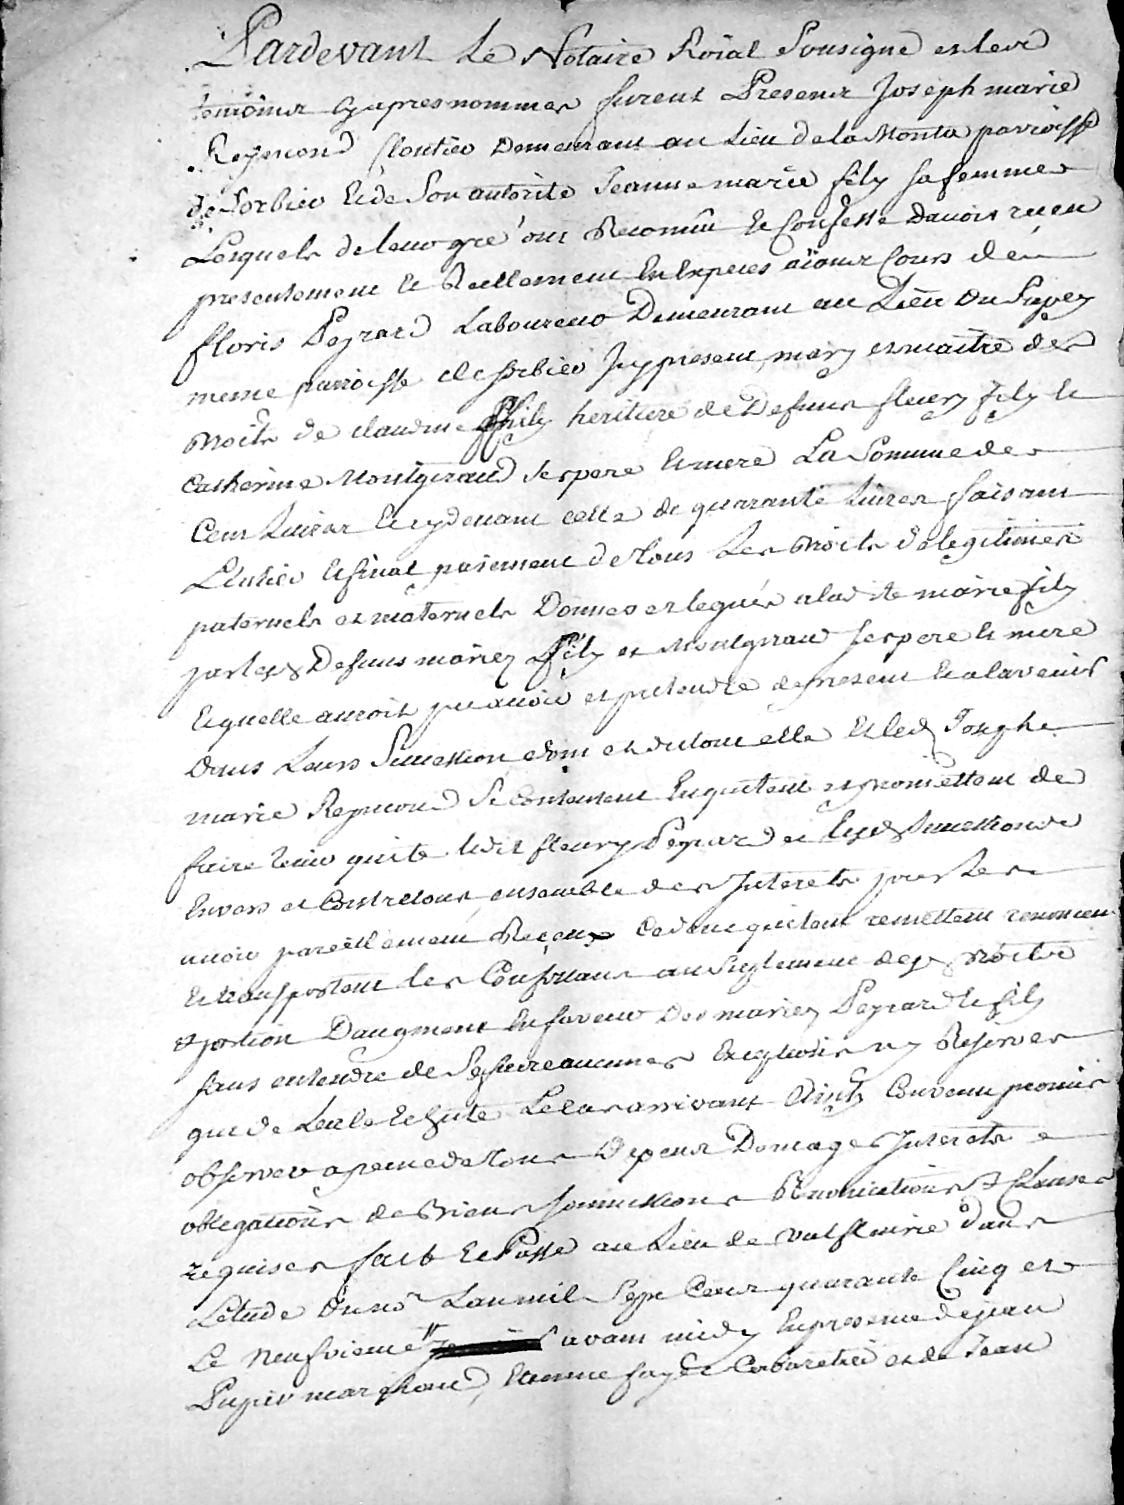 Pardevant Le Notaire Roial Sousigné et les
temoins cy apres nommes furent Presens Joseph marie
Reymond Cloutier Demeurant au Lieu de la Monta parroisse
de Sorbier et de Son autorité Jeanne marie fily sa femme
Lesquels de leur gré ont Reconnu et Confessé Davoir reçeu
presentement et Reellement En Especes aïant Cours de
floris Peyrard Laboureur Demeurant au Lieu Du
meme parroisse de Sorbier Icy present, mary et maitre des
Droits de claudine fily heritiere de Defunts fleury fily et
Catherine Montgiraud Ses pere et mere La Somme de
Cent Livres et cy devant celle de quarante Livres faisant
L'entier et final paiement de Tous Les Droits de legitimes
paternels et maternels Donnes et legués a la dite marie fily
par lesd Defunts mariez fily et Montgiraud Ses pere et mere
et quelle auroit pu avoir et pretendre de present et a lavenir
dans Leurs Succession dont et du tout elle et led Joseph
marie Reymond Se Contentent En quitent et promettent de
faire tenir quite ledit fleury Peyrard et lesd Successions
Envers et Contre tous, ensemble des Interets pour les
avoir pareillement Reçeux Cedent quitent remettent renoncent
et transportent les Confessans au Suplement desd droits
et portion Daugment En faveur Des mariez Peyrard et fily
sans entendre de Se faire aucunes Exeptions ny Reserves
que de Leale Echute Le Cas arrivant Ainsy Convenu promis
observer a peine de Tous Depens Domages Interets
obligations de Biens Soumissions Renonciations & Clauses
requises fait et Passé au Lieu de Valfleurie Dans
L'etude Du nore Lan mil Sept Cens quarante Cinq et
Le neufvieme avant midy En presence de jean
Pupier marchand, Etienne fayet Cabaretier et de Jean